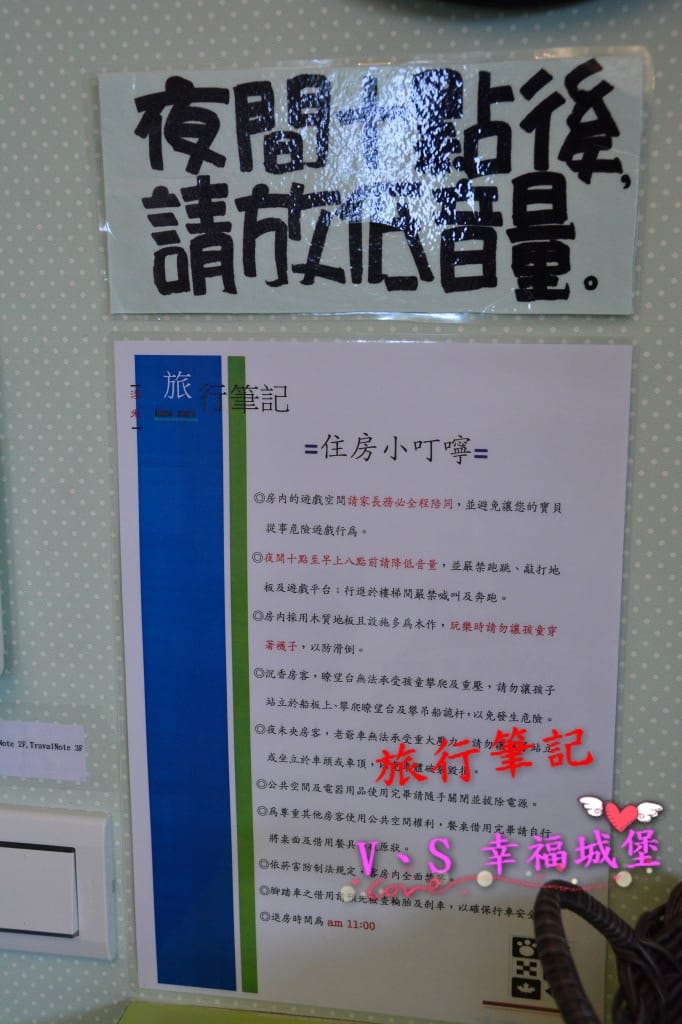 夜間十點後,
請放低音量。
旅行筆記
=住房小叮嚀=
◎房內的遊戲空間請家長務必全程陪同，並避免讓您的寶貝
從事危險遊戲行為。
◎夜間十點至早上八點前請降低音量，並嚴禁跑跳、敲打地
板及遊戲平台；行進於樓梯間嚴禁喊叫及奔跑。
◎房內採用木質地板且設施多為木作，玩樂時請勿讓孩童穿
著襪子，以防滑倒。
◎沉香房客，瞭望台無法承受孩童攀爬及重壓，請勿讓孩子
站立於船板上、攀爬瞭望台及攀吊船詭杆，以免發生危險。
◎夜未央房客，老爺車無法承受重大壓力，請勿讓
站立
或坐立於車頭或車頂，
毀損。
旅行筆記
◎公共空間及電器用品使用完畢請隨手關閉並拔除電源。
◎為尊重其他房客使用公共空間權利，餐桌借用完畢請自行
將桌面及借用餐具
原狀。
V、S 幸福城堡
Love
◎依菸害防制法規定，客房內全面禁
◎腳踏車之借用請預先檢查輪胎及剎車，以確保行車安全
◎退房時間為 am 11:00
Note 2F,TravalNote 3F